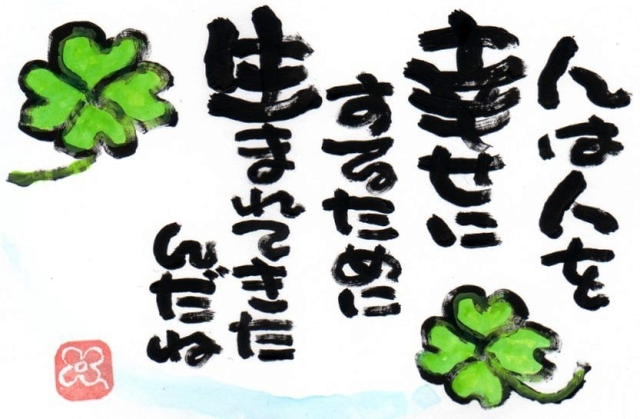 人は人を
幸せに
するために
生まれてきた
んだね